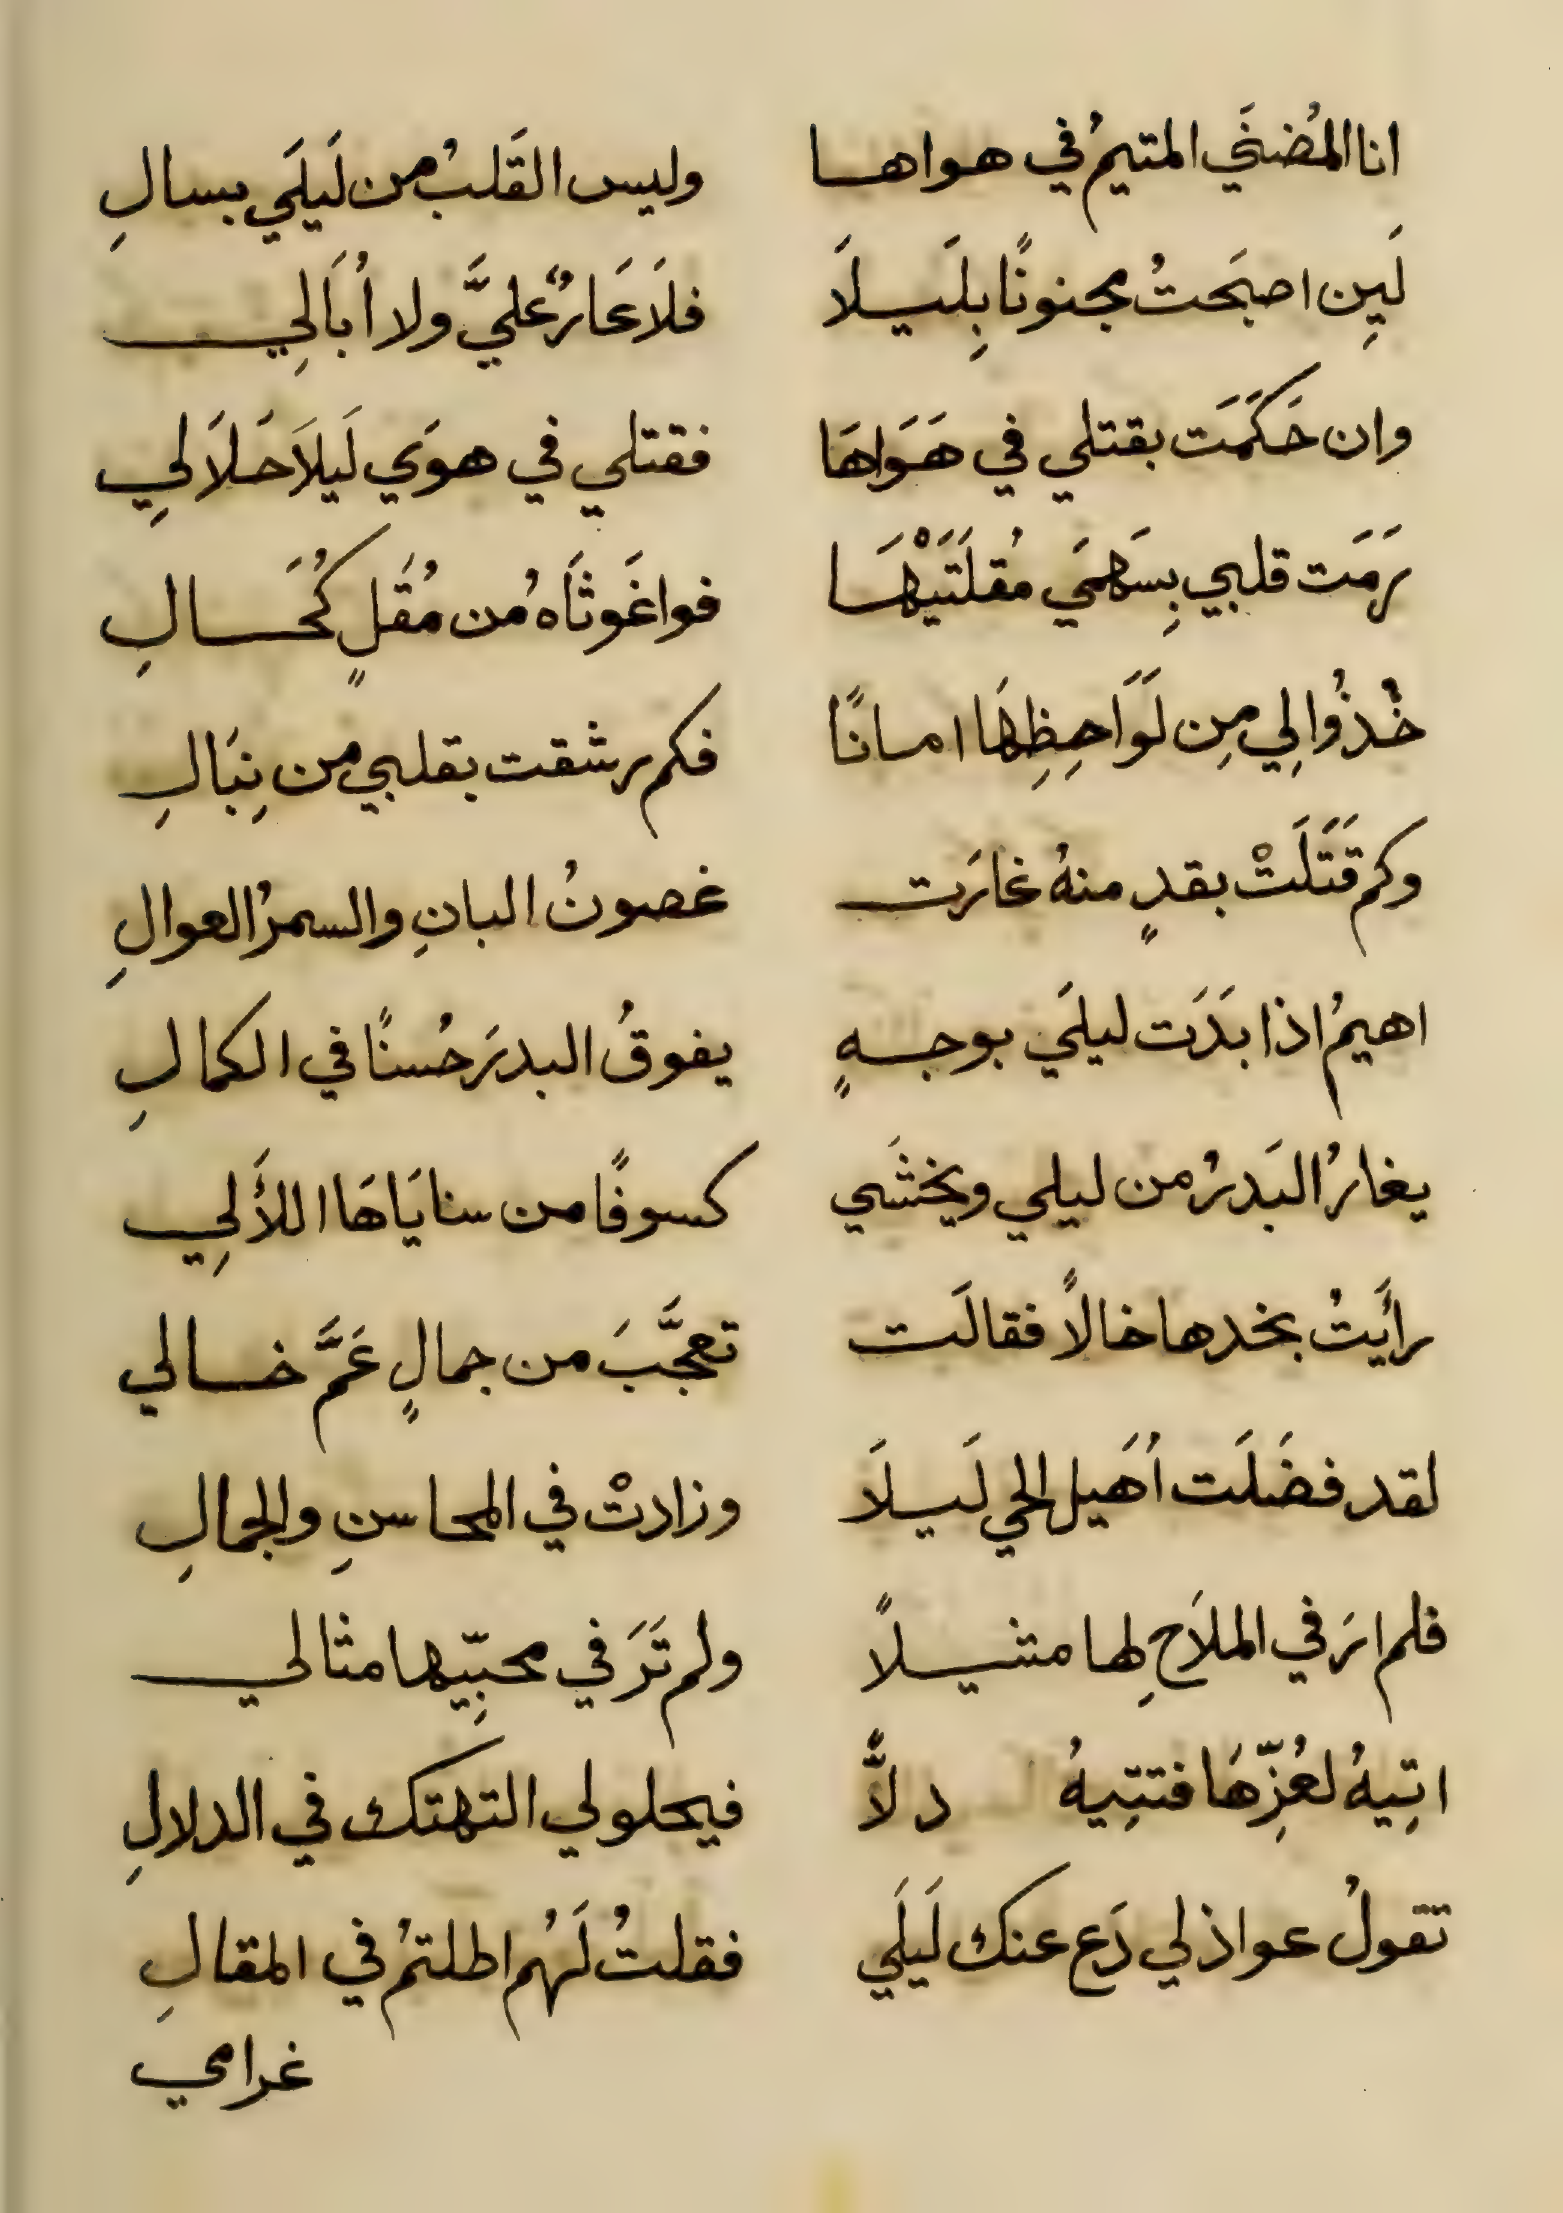 انا المُضنَي المتيمُ في هواها وليس القَلبُ من لَيلَي بسالِ
لَيِن اصبَحتُ مجنونًا بِلَيلَا فلَاعَارٌ عليَّ ولا اُبَالِي
وان حَكَمَت بقتلي في هَوَاهَا فقتلي في هوَي لَيلَا حَلَالِي
رَمَت قلبي بِسَهمَي مُقلَتَيْهَا فواغَوثَاهُ من مُقَلٍ كُحَالِ
خُذُوا لِي مِن لَوَاحِظِهَا امانًا فكم رشقت بقلبي من نِبَالِ
وكم قَتَلَتْ بقدٍ منهُ غارَت غصونُ البانِ والسمرُ العوالِ
اهيمُ اذا بدَت ليلَي بوجهٍ يفوقُ البدرَ حُسنًا في الكمالِ
يغارُ البَدرُ من ليلي ويخشَي كسوفًا من سنايَاهَا اللأَلِي
رأَيتُ بخدها خالًا فقالَت تعجَّبَ من جمالٍ عَمَّ خالي
لقد فضَلَت اُهَيل الحي لَيلَا وزادتْ في المحاسنِ والجمالِ
فلم ارَ في الملَاحِ لِها مثيلًا ولم تَرَ في محبِّيها مثالي
اتِيهُ لعُزِّهَا فتتِيهُ دلًّا فيحلو لي التهتك في الدلالِ
تقولُ عواذلي دَع عنك لَيلَي فقلتُ لَهُم اطلتمُ في المقالِ
غرامي